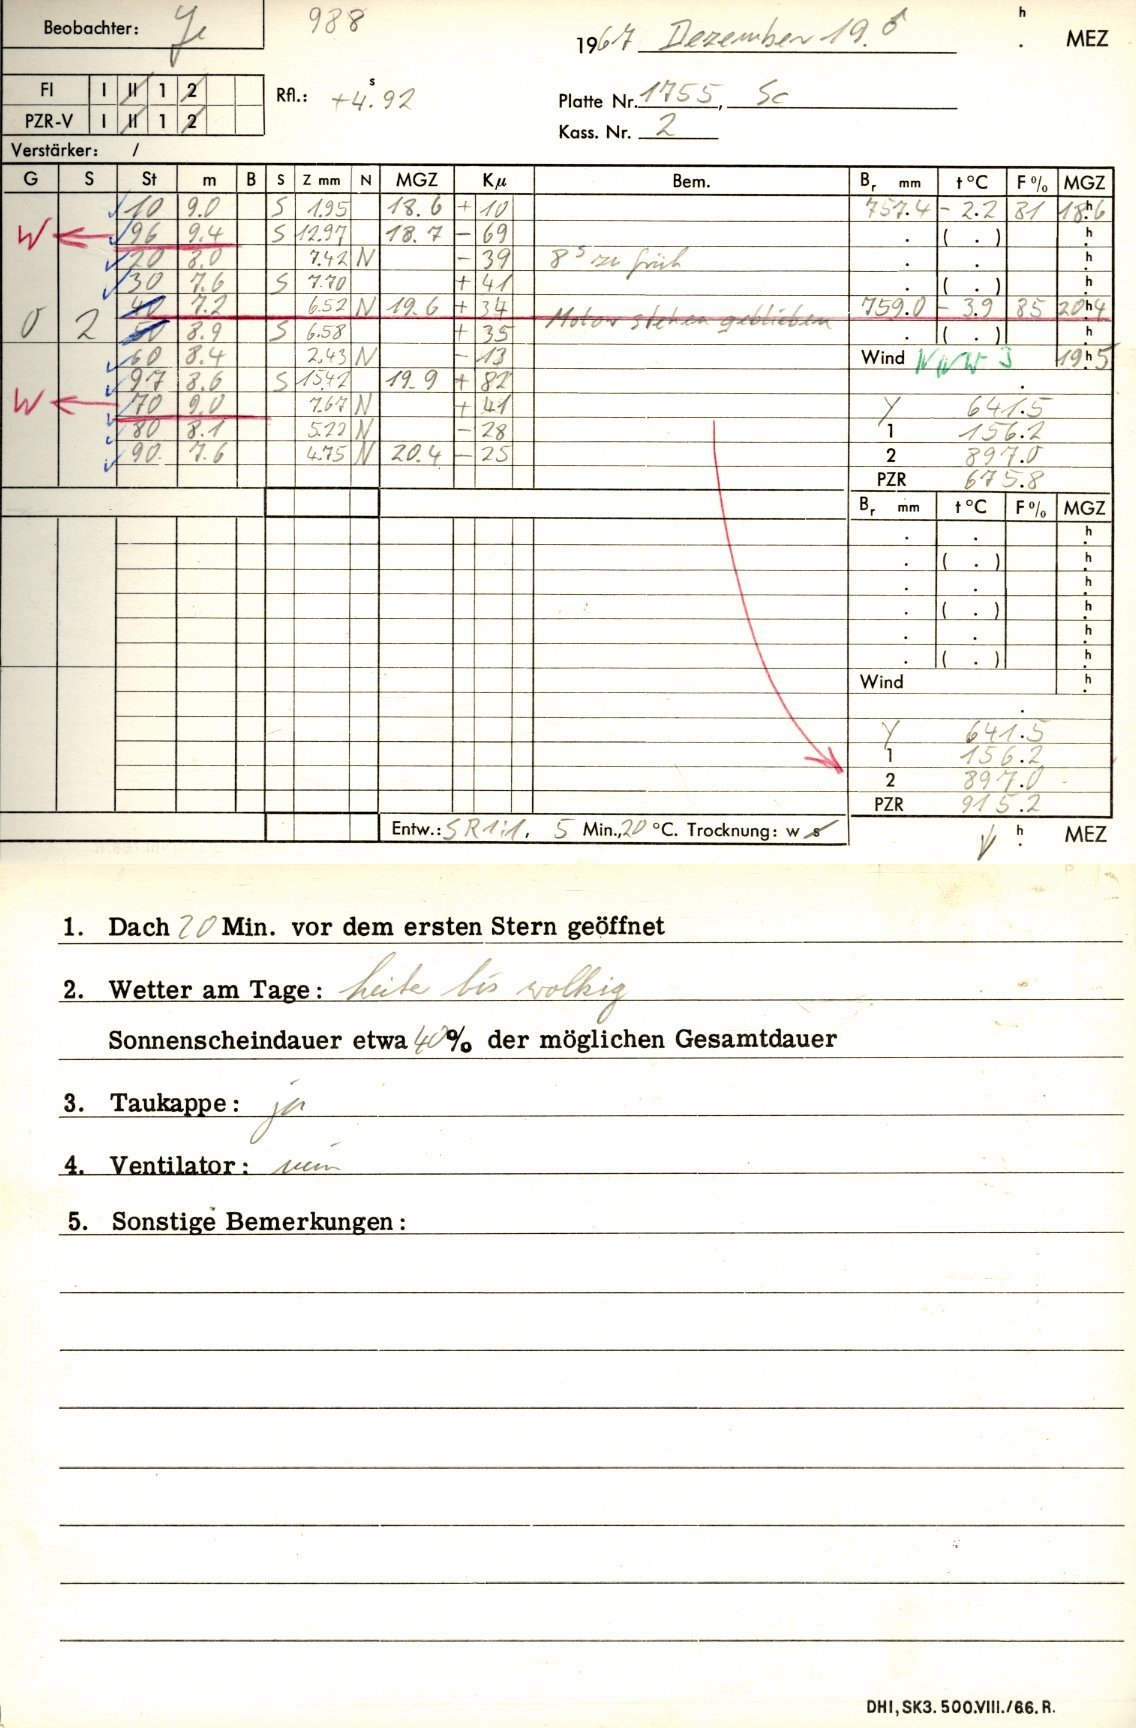 Beobachter: Je 988
1967 Dezember 19.6 h . MEZ
FI I II 1 2 Rfl.: +4.s92 Platte Nr. 1755, Sc
PZR-V I II 1 2 Kass. Nr. 2
Verstärker: /
G S St m B S Z mm N MGZ Kμ Bem. Br mm t°C F% MGZ
10 9.0 S 1.95 18.6 + 10 757.4 - 2.2 81 18h6
W 96 9.4 S 12.97 18.7 - 69 . ( . ) h
20 8.0 7.42 N - 39 8s zu früh . . h
30 7.6 S 7.70 + 41 . ( . ) h
40 7.2 6.52 N 19.6 + 34 Motor stehen geblieben 759.0 - 3.9 85 20h4
O 2 50 8.9 S 6.58 + 35 . ( . ) h
60 8.4 2.43 N - 13 Wind NNW 3 19h5
97 8.6 S 15.42 19.9 + 82 .
W 70 9.0 7.67 N + 41 Y 641.5
80 8.1 5.22 N - 28 1 156.2
90 7.6 4.75 N 20.4 - 25 2 897.0
PZR 675.8
Br mm t°C F% MGZ
. . h
. ( . ) h
. . h
. ( . ) h
. . h
. ( . ) h
Wind h
.
Y 641.5
1 156.2
2 897.0
PZR 915.2
Entw.: SR 1:1, 5 Min., 20 °C. Trocknung: w s
h . MEZ
1. Dach 20 Min. vor dem ersten Stern geöffnet
2. Wetter am Tage: heiter bis wolkig
Sonnenscheindauer etwa 40% der möglichen Gesamtdauer
3. Taukappe: ja
4. Ventilator: nein
5. Sonstige Bemerkungen:
DHI, SK3. 500.VIII./66. R.